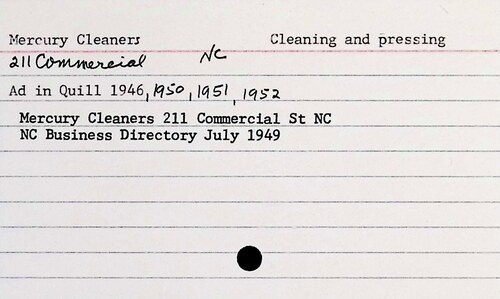 Mercury Cleaners Cleaning and pressing
211 Commercial NC
Ad in Quill 1946, 1950, 1951, 1952
Mercury Cleaners 211 Commercial St NC
NC Business Directory July 1949